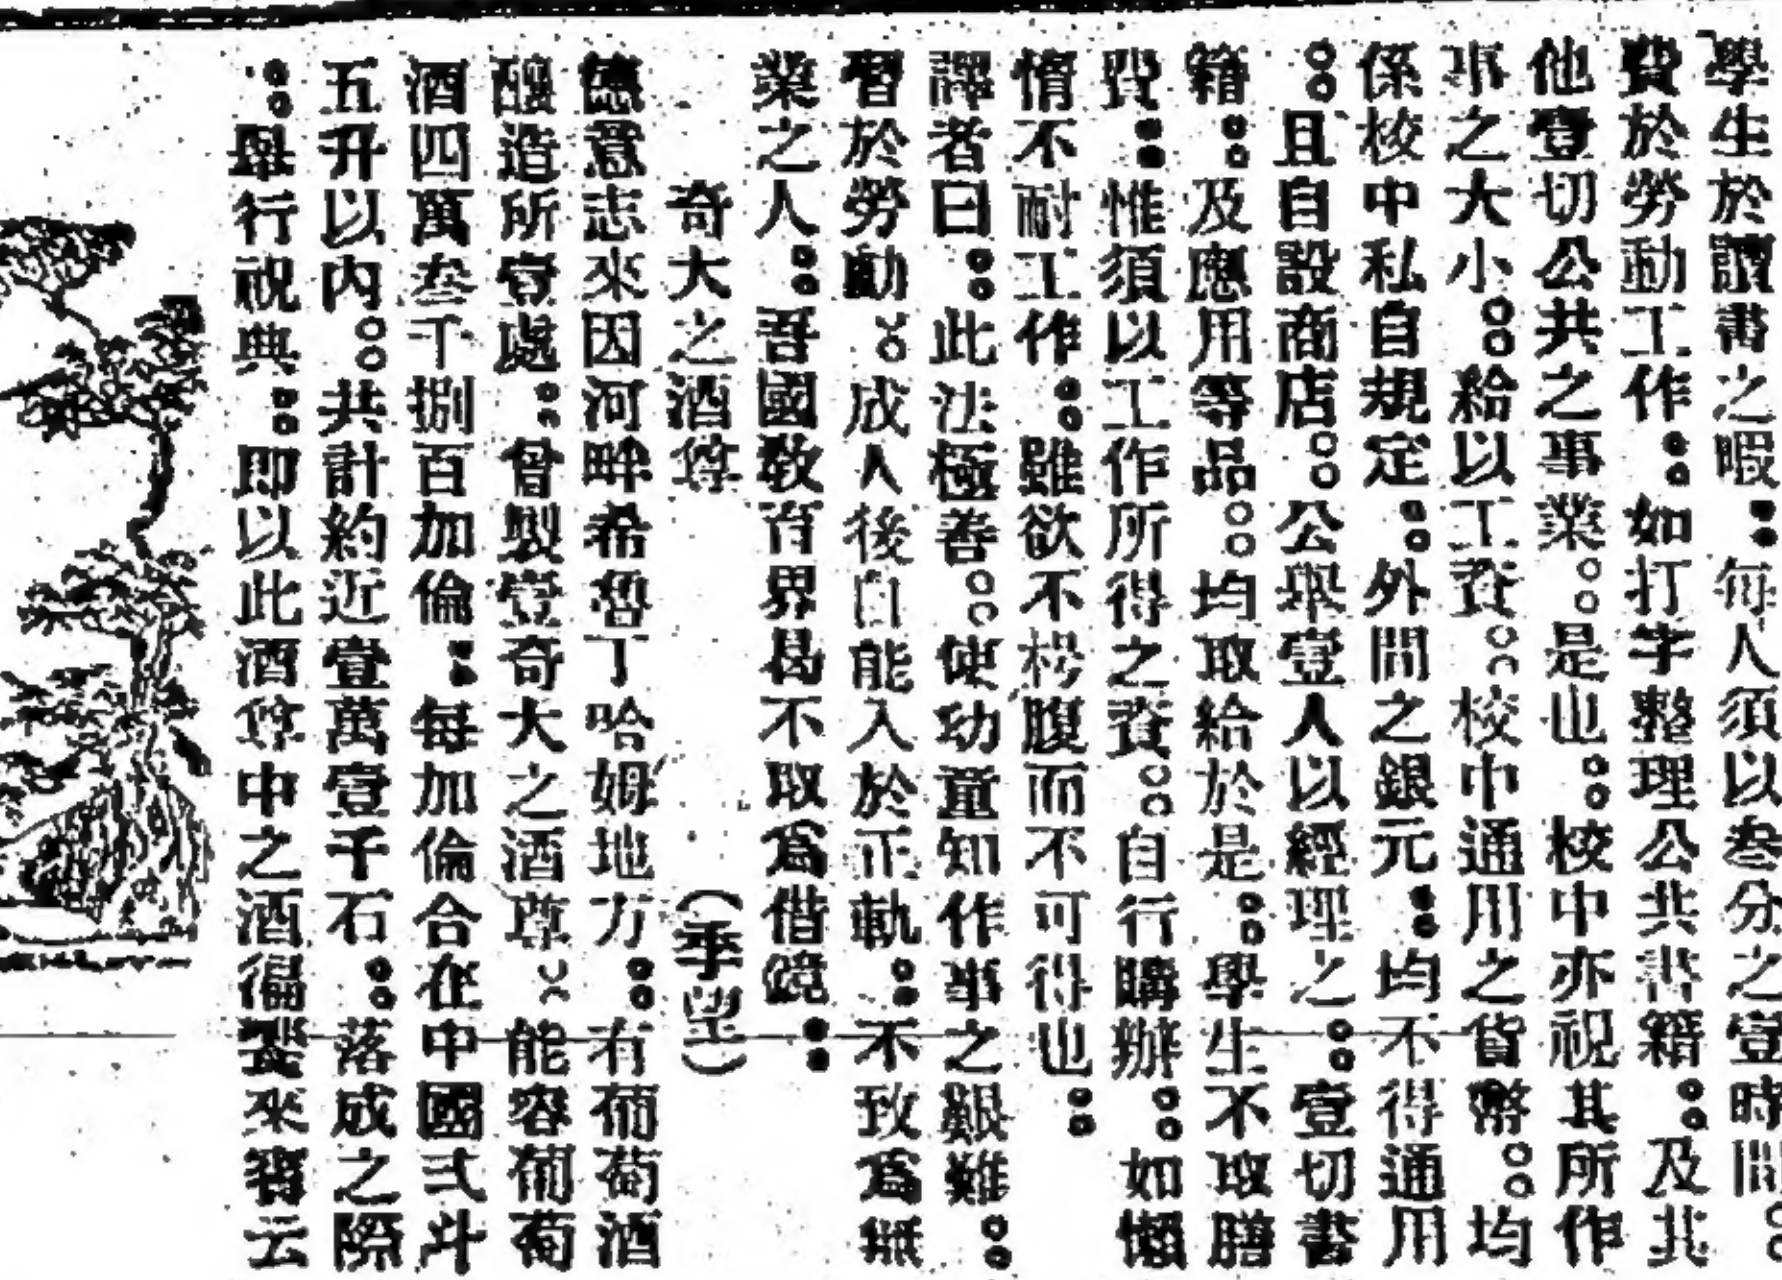 學生於讀書之暇。。每人須以叁分之壹時間。。
費於勞動工作。。如打字整理公共書籍。。及其
他壹切公共之事業。。是也。。校中亦視其所作
事之大小。。給以工資。。校中通用之貨幣。。均
係校中私自規定。。外間之銀元。。均不得通用
。。且自設商店。。公舉壹人以經理之。。壹切書
籍。。及應用等品。。均取給於是。。學生不取膳
費。。惟須以工作所得之資。。自行購辦。。如懶
惰不耐工作。。雖欲不枵腹而不可得也。。
譯者曰。。此法極善。。使幼童知作事之艱難。。
習於勞動。。成人後自能入於正軌。。不致爲無
業之人。。吾國教育界曷不取爲借鏡。。
奇大之酒尊 (季望)
德意志來因河畔希魯丁哈姆地方。。有葡萄酒
釀造所壹處。。曾製壹奇大之酒尊。。能容葡萄
酒四萬叁千捌百加倫。。每加倫合在中國弍斗
五升以內。。共計約近壹萬壹千石。。落成之際
。。舉行祝典。。即以此酒尊中之酒徧饗來賓云